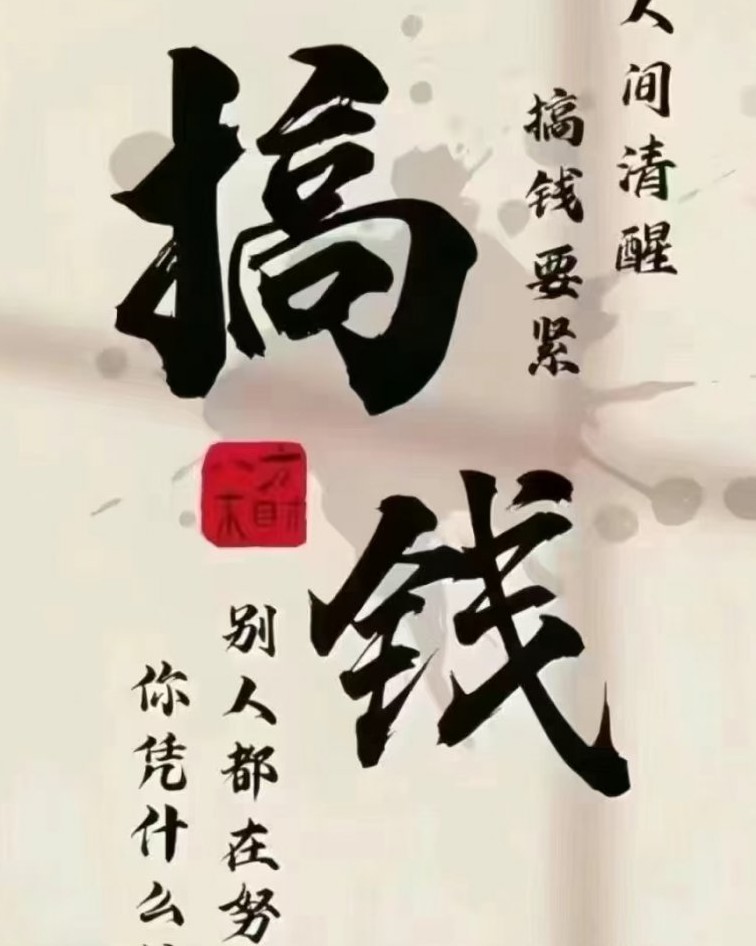 人间清醒
搞钱要紧
搞钱
别人都在努
你凭什么